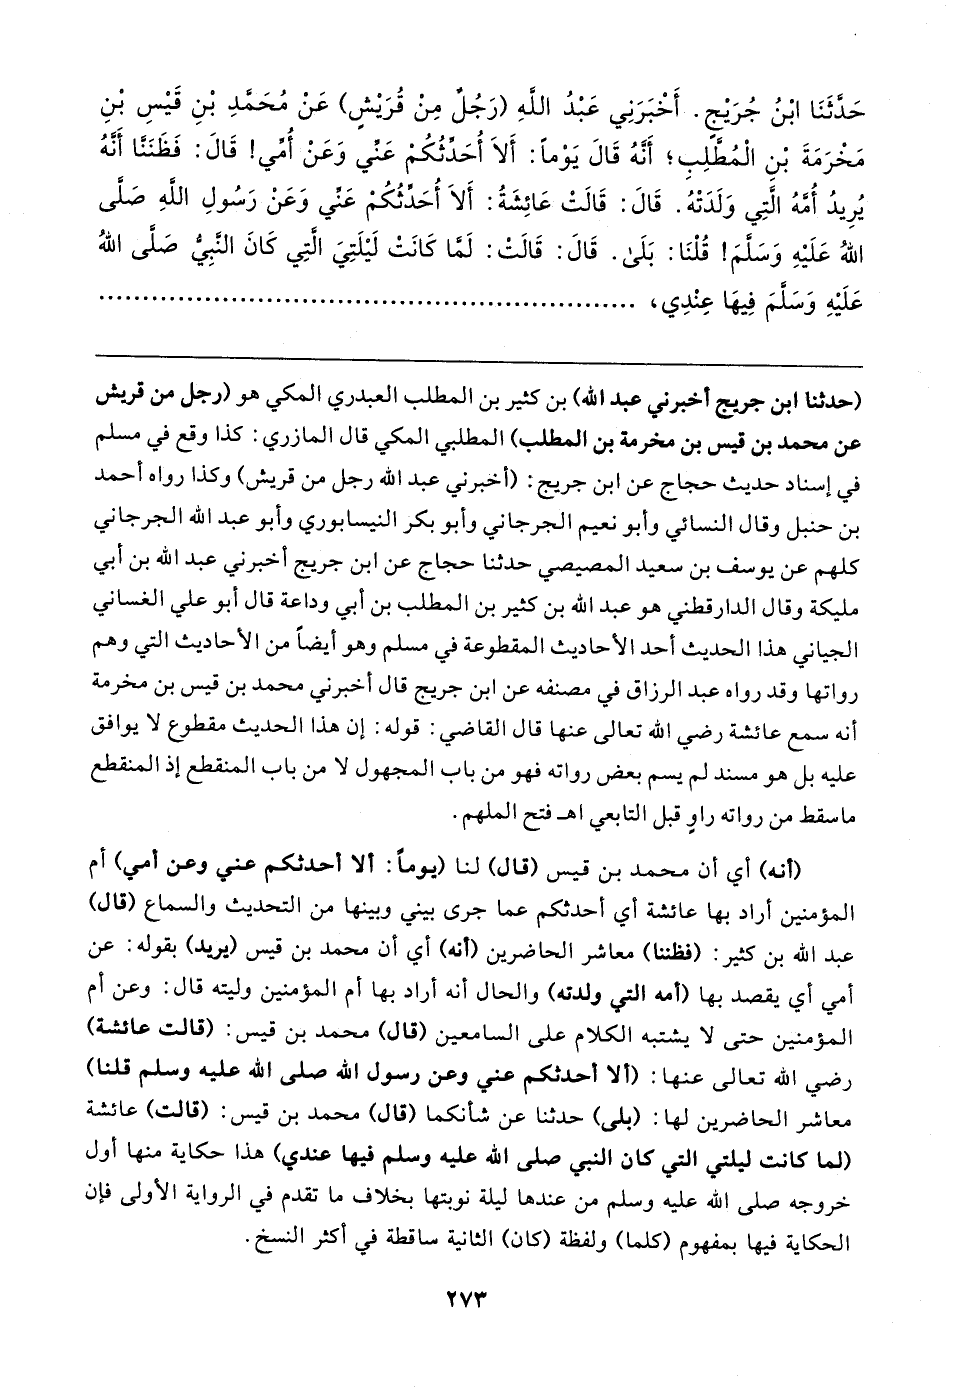 حَدَّثَنَا ابْنُ جُرَيْجٍ. أَخْبَرَنِي عَبْدُ اللَّهِ (رَجُلٌ مِنْ قُرَيْشٍ) عَنْ مُحَمَّدِ بْنِ قَيْسِ بْنِ
مَخْرَمَةَ بْنِ الْمُطَّلِبِ؛ أَنَّهُ قَالَ يَوْماً: أَلاَ أُحَدِّثُكُمْ عَنِّي وَعَنْ أُمِّي! قَالَ: فَظَنَنَّا أَنَّهُ
يُرِيدُ أُمَّهُ الَّتِي وَلَدَتْهُ. قَالَ: قَالَتْ عَائِشَةُ: أَلاَ أُحَدِّثُكُمْ عَنِّي وَعَنْ رَسُولِ اللَّهِ صَلَّى
اللهُ عَلَيْهِ وَسَلَّمَ! قُلْنَا: بَلَىٰ. قَالَ: قَالَتْ: لَمَّا كَانَتْ لَيْلَتِيَ الَّتِي كَانَ النَّبِيُّ صَلَّى اللهُ
عَلَيْهِ وَسَلَّمَ فِيهَا عِنْدِي، ............................................................
(حدثنا ابن جريج أخبرني عبد الله) بن كثير بن المطلب العبدري المكي هو (رجل من قريش
عن محمد بن قيس بن مخرمة بن المطلب) المطلبي المكي قال المازري: كذا وقع في مسلم
في إسناد حديث حجاج عن ابن جريج: (أخبرني عبد الله رجل من قريش) وكذا رواه أحمد
بن حنبل وقال النسائي وأبو نعيم الجرجاني وأبو بكر النيسابوري وأبو عبد الله الجرجاني
كلهم عن يوسف بن سعيد المصيصي حدثنا حجاج عن ابن جريج أخبرني عبد الله بن أبي
مليكة وقال الدارقطني هو عبد الله بن كثير بن المطلب بن أبي وداعة قال أبو علي الغساني
الجياني هذا الحديث أحد الأحاديث المقطوعة في مسلم وهو أيضاً من الأحاديث التي وهم
رواتها وقد رواه عبد الرزاق في مصنفه عن ابن جريج قال أخبرني محمد بن قيس بن مخرمة
أنه سمع عائشة رضي الله تعالى عنها قال القاضي: قوله: إن هذا الحديث مقطوع لا يوافق
عليه بل هو مسند لم يسم بعض رواته فهو من باب المجهول لا من باب المنقطع إذ المنقطع
ماسقط من رواته راوٍ قبل التابعي اهـ فتح الملهم.
(أنه) أي أن محمد بن قيس (قال) لنا (يوماً: ألا أحدثكم عني وعن أمي) أم
المؤمنين أراد بها عائشة أي أحدثكم عما جرى بيني وبينها من التحديث والسماع (قال)
عبد الله بن كثير: (فظننا) معاشر الحاضرين (أنه) أي أن محمد بن قيس (يريد) بقوله: عن
أمي أي يقصد بها (أمه التي ولدته) والحال أنه أراد بها أم المؤمنين وليته قال: وعن أم
المؤمنين حتى لا يشتبه الكلام على السامعين (قال) محمد بن قيس: (قالت عائشة)
رضي الله تعالى عنها: (ألا أحدثكم عني وعن رسول الله صلى الله عليه وسلم قلنا)
معاشر الحاضرين لها: (بلى) حدثنا عن شأنكما (قال) محمد بن قيس: (قالت) عائشة
(لما كانت ليلتي التي كان النبي صلى الله عليه وسلم فيها عندي) هذا حكاية منها أول
خروجه صلى الله عليه وسلم من عندها ليلة نوبتها بخلاف ما تقدم في الرواية الأولى فإن
الحكاية فيها بمفهوم (كلما) ولفظة (كان) الثانية ساقطة في أكثر النسخ.
٢٧٣